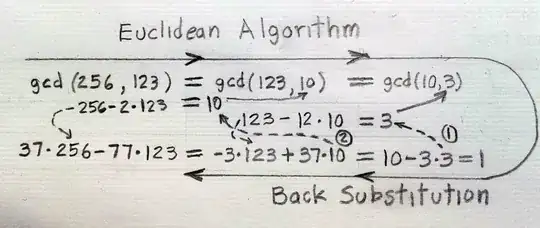 Euclidean Algorithm
gcd(256, 123) = gcd(123, 10) = gcd(10,3)
256-2·123 = 10
123-12·10 = 3
①
②
37·256-77·123 = -3·123+37·10 = 10-3·3=1
Back Substitution